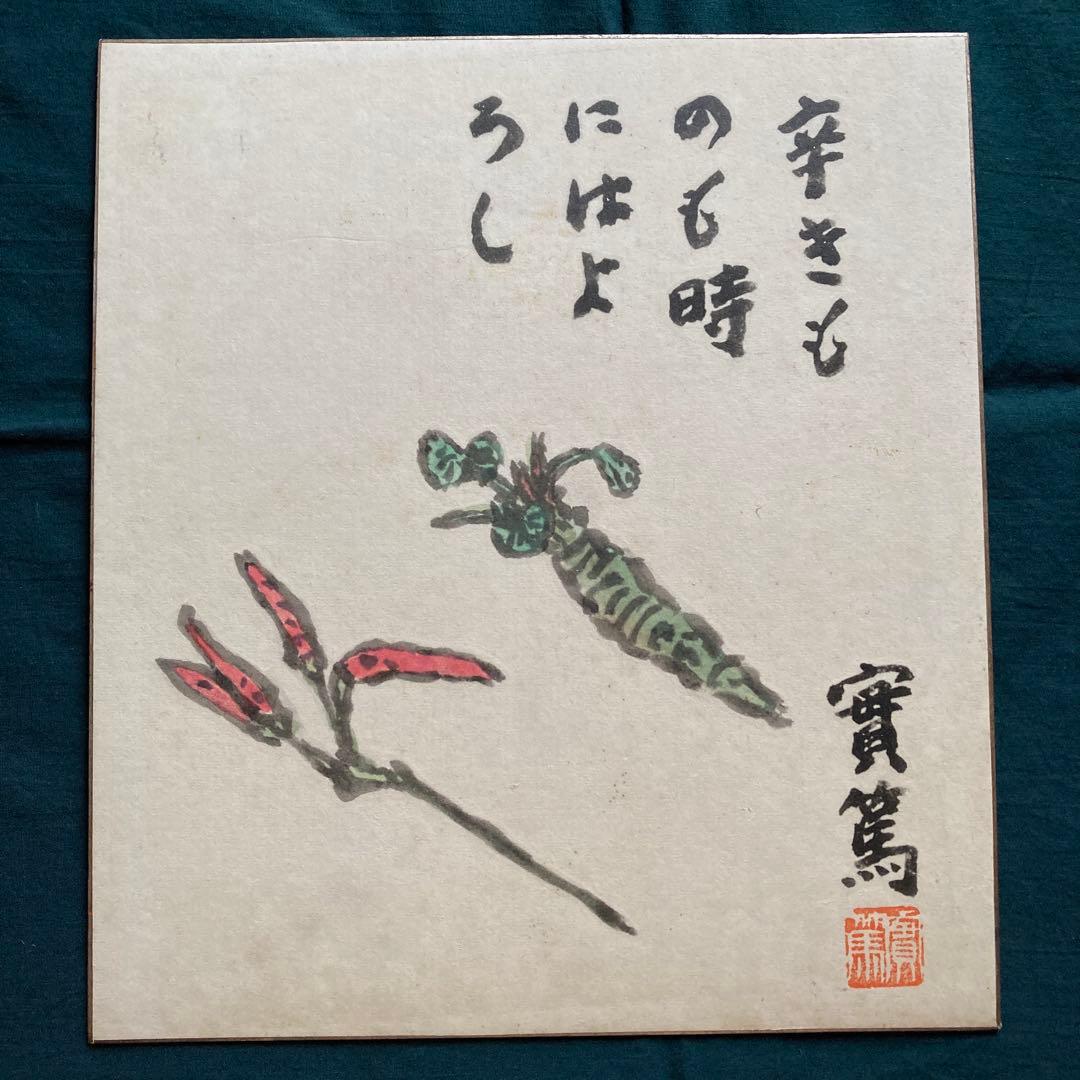 辛きも
のも時
にはよ
ろし
實篤
實篤